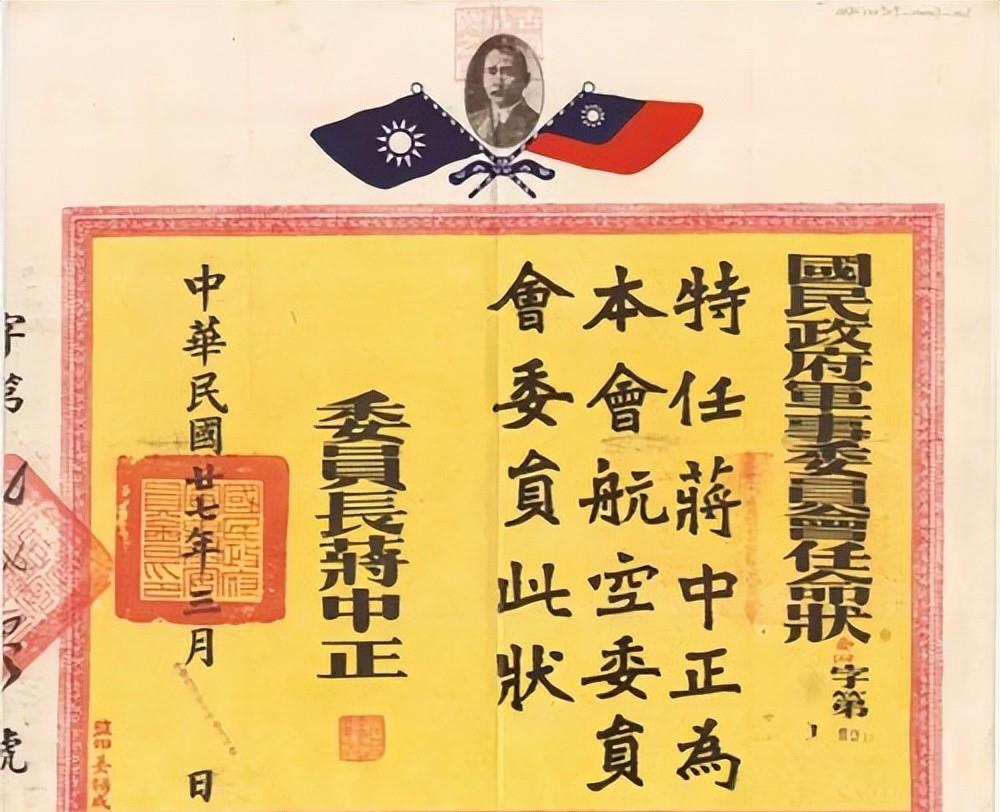 國民政府軍事委員會任命狀
字第
特任蔣中正為
本會航空委員
會委員此狀
委員長蔣中正
中華民國廿七年三月
日
字第
號